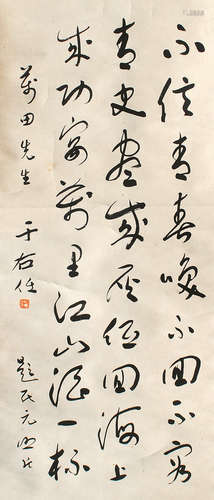 不信青春喚不回不容
青史盡成灰低回海上
成功宴萬里江山酒一杯
萬田先生
于右任
題民元照片